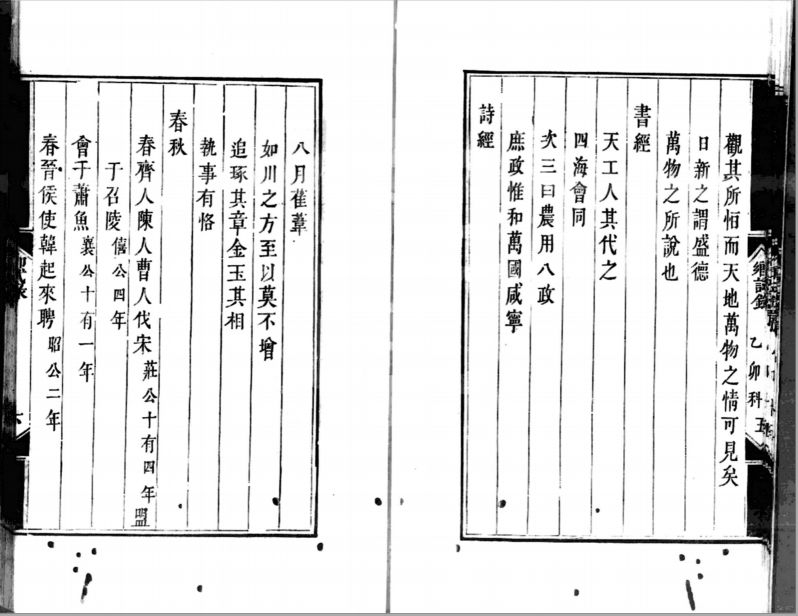 鄉試錄 乙卯科 五
觀其所恒而天地萬物之情可見矣
日新之謂盛德
萬物之所說也
書經
天工人其代之
四海會同
次三曰農用八政
庶政惟和萬國咸寧
詩經
八月萑葦
如川之方至以莫不增
追琢其章金玉其相
執事有恪
春秋
春齊人陳人曹人伐宋莊公十有四年盟
于召陵僖公四年
會于蕭魚襄公十有一年
春晉侯使韓起來聘昭公二年
六